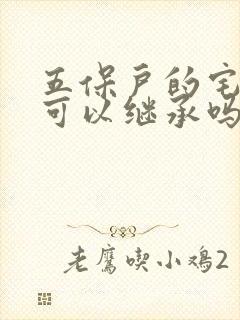 五保户的宅
可以继承吗
老鹰喫小鸡2